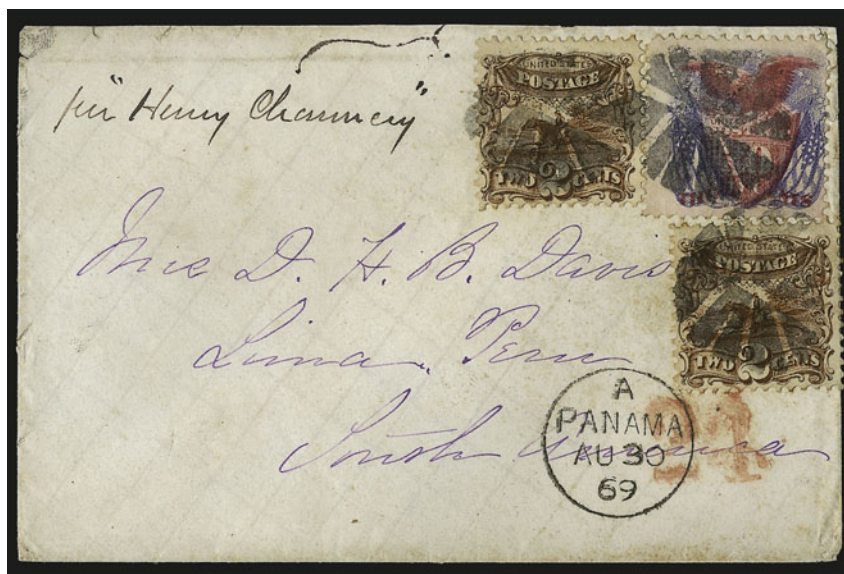 per "Henry Chauncey"
UNITED STATES
POSTAGE
TWO 2 CENTS
UNITED STATES
POSTAGE
TWO 2 CENTS
D. H. B. Davis
Lima, Peru
South America
A
PANAMA
AU 30
69
24